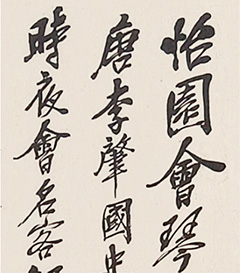 怡園會琴
唐李肇國史
時夜會名客